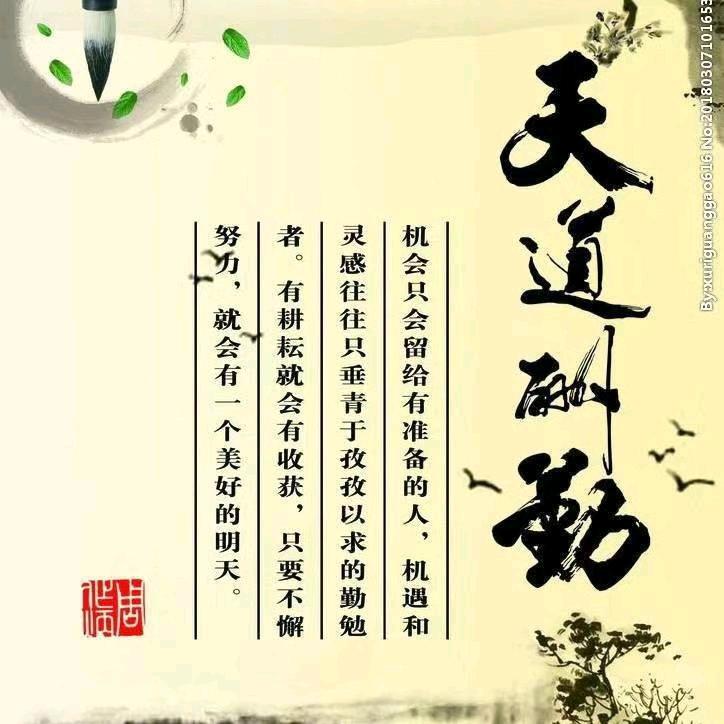 天道酬勤
机会只会留给有准备的人，机遇和
灵感往往只垂青于孜孜以求的勤勉
者。有耕耘就会有收获，只要不懈
努力，就会有一个美好的明天。
By:xuriguanggao616 No:20180307101653